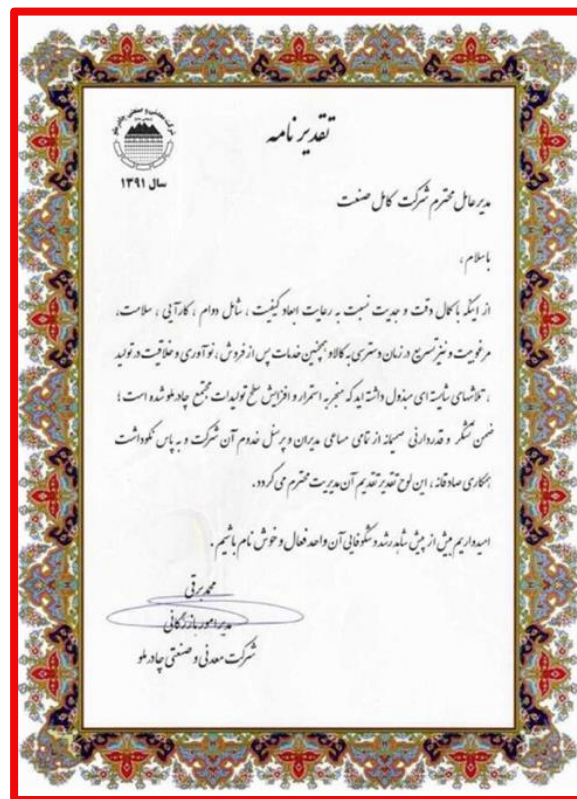 تقدیر نامه
شرکت معدنی و صنعتی چادرملو
سال ۱۳۹۱
مدیر عامل محترم شرکت کامل صنعت
باسلام ،
از اینکه با کمال دقت و جدیت نسبت به رعایت ابعاد کیفیت ، شامل دوام ، کارآیی ، سلامت ،
مرغوبیت و نیز تسریع در زمان دسترسی به کالا و همچنین خدمات پس از فروش ، نوآوری و خلاقیت در تولید
، تلاشهای شایسته ای مبذول داشته اید که منجر به استمرار و افزایش سطح تولیدات مجتمع چادرملو شده است ؛
ضمن تشکر و قدردانی صمیمانه از تمامی مساعی مدیران و پرسنل خدوم آن شرکت و به پاس نکوداشت
همکاری صادقانه ، این لوح تقدیر تقدیم آن مدیریت محترم می گردد .
امیدواریم بیش از پیش شاهد رشد و شکوفایی آن واحد فعال و خوش نام باشیم .
محمد برقی
مدیر امور بازرگانی
شرکت معدنی و صنعتی چادرملو